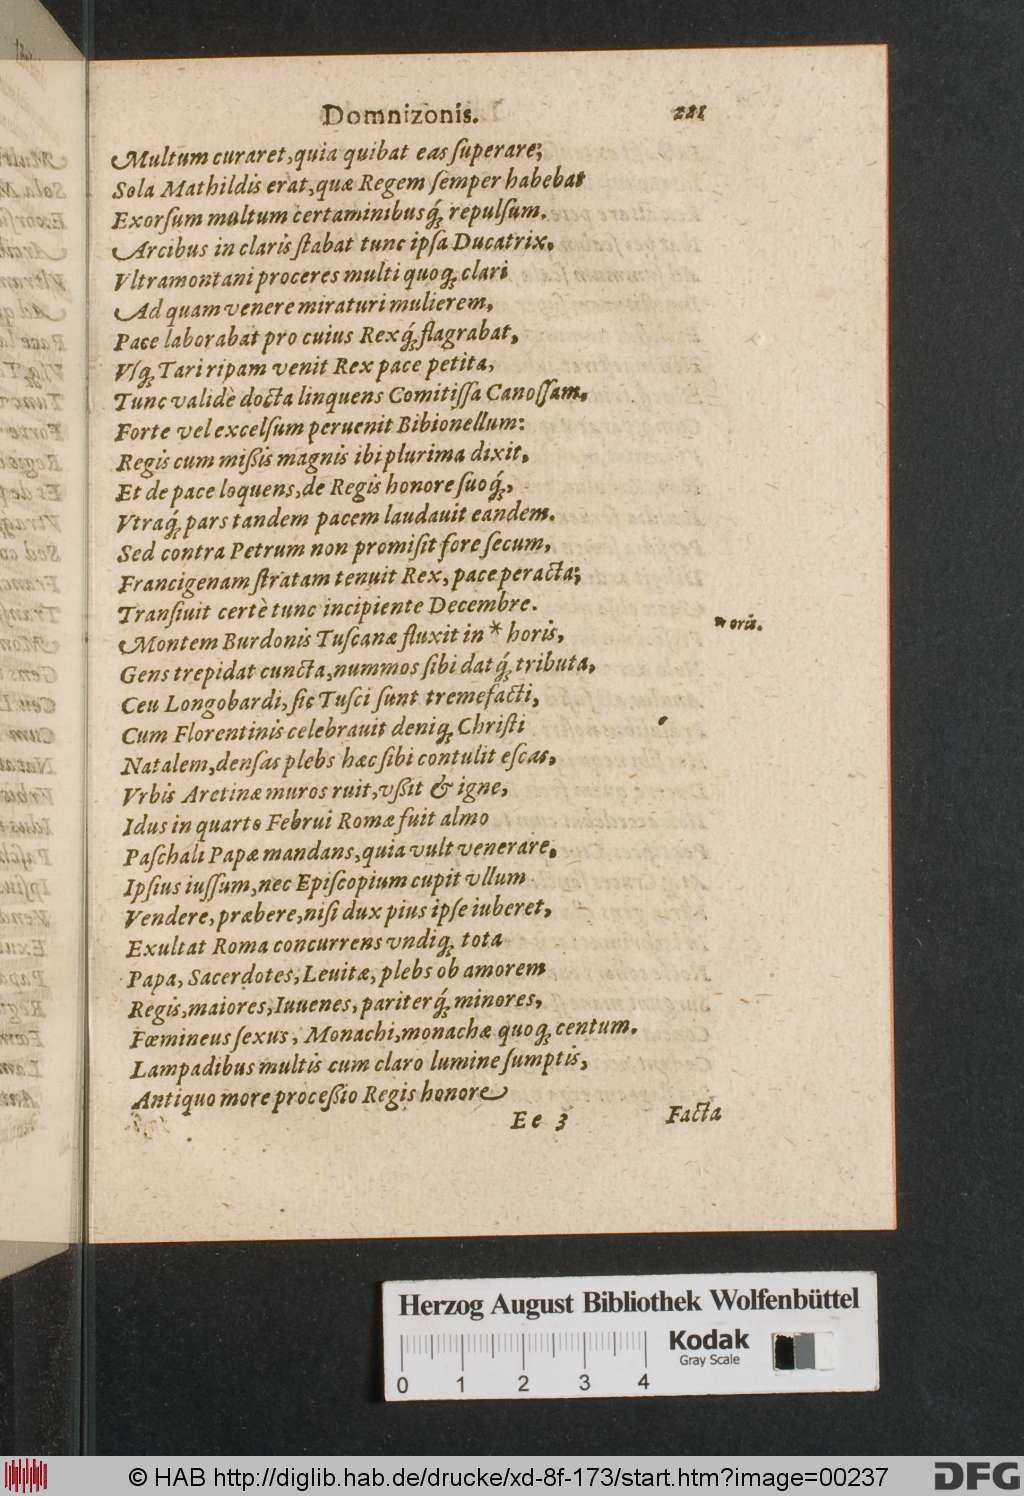 Domnizonis. 221
Multum curaret, quia quibat eas ſuperare;
Sola Mathildis erat, quæ Regem ſemper habebat
Exorſum multum certaminibusq́; repulſum.
Arcibus in claris ſtabat tunc ipſa Ducatrix.
Vltramontani proceres multi quoq; clari
Ad quam venere miraturi mulierem,
Pace laborabat pro cuius Rexq́; flagrabat,
Vſq; Tari ripam venit Rex pace petita,
Tunc validè docta linquens Comitiſſa Canoſſam.
Forte vel excelſum peruenit Bibionellum:
Regis cum mißis magnis ibi plurima dixit,
Et de pace loquens, de Regis honore ſuoq́;,
Vtraq́; pars tandem pacem laudauit eandem.
Sed contra Petrum non promiſit fore ſecum,
Francigenam ſtratam tenuit Rex, pace peracta;
Tranſiuit certè tunc incipiente Decembre.
Montem Burdonis Tuſcanæ fluxit in * horis,
oris.
Gens trepidat cuncta, nummos ſibi dat q́; tributa,
Ceu Longobardi, ſic Tuſci ſunt tremefacti,
Cum Florentinis celebrauit deniq; Chriſti
Natalem, denſas plebs hæc ſibi contulit eſcas,
Vrbis Aretinæ muros ruit, vßit & igne,
Idus in quarto Februi Romæ fuit almo
Paſchali Papæ mandans, quia vult venerare,
Ipſius iuſſum, nec Epiſcopium cupit vllum
Vendere, præbere, niſi dux pius ipſe iuberet,
Exultat Roma concurrens vndiq; tota
Papa, Sacerdotes, Leuitæ, plebs ob amorem
Regis, maiores, Iuuenes, pariterq́; minores,
Fœmineus ſexus, Monachi, monachæ quoq; centum.
Lampadibus multis cum claro lumine ſumptis,
Antiquo more proceßio Regis honore
Ee 3 Facta
Herzog August Bibliothek Wolfenbüttel
Kodak
Gray Scale
0 1 2 3 4
© HAB http://diglib.hab.de/drucke/xd-8f-173/start.htm?image=00237
DFG